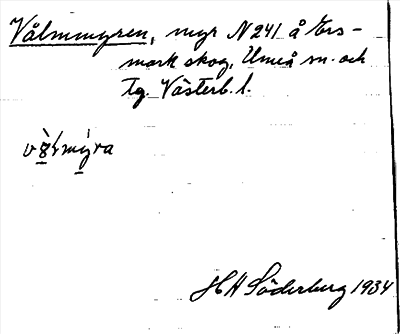 Vålmmyren, myr N 241 å Ers-
mark skog, Umeå sn. och
tg. Västerb. l.
HA Söderberg 1934